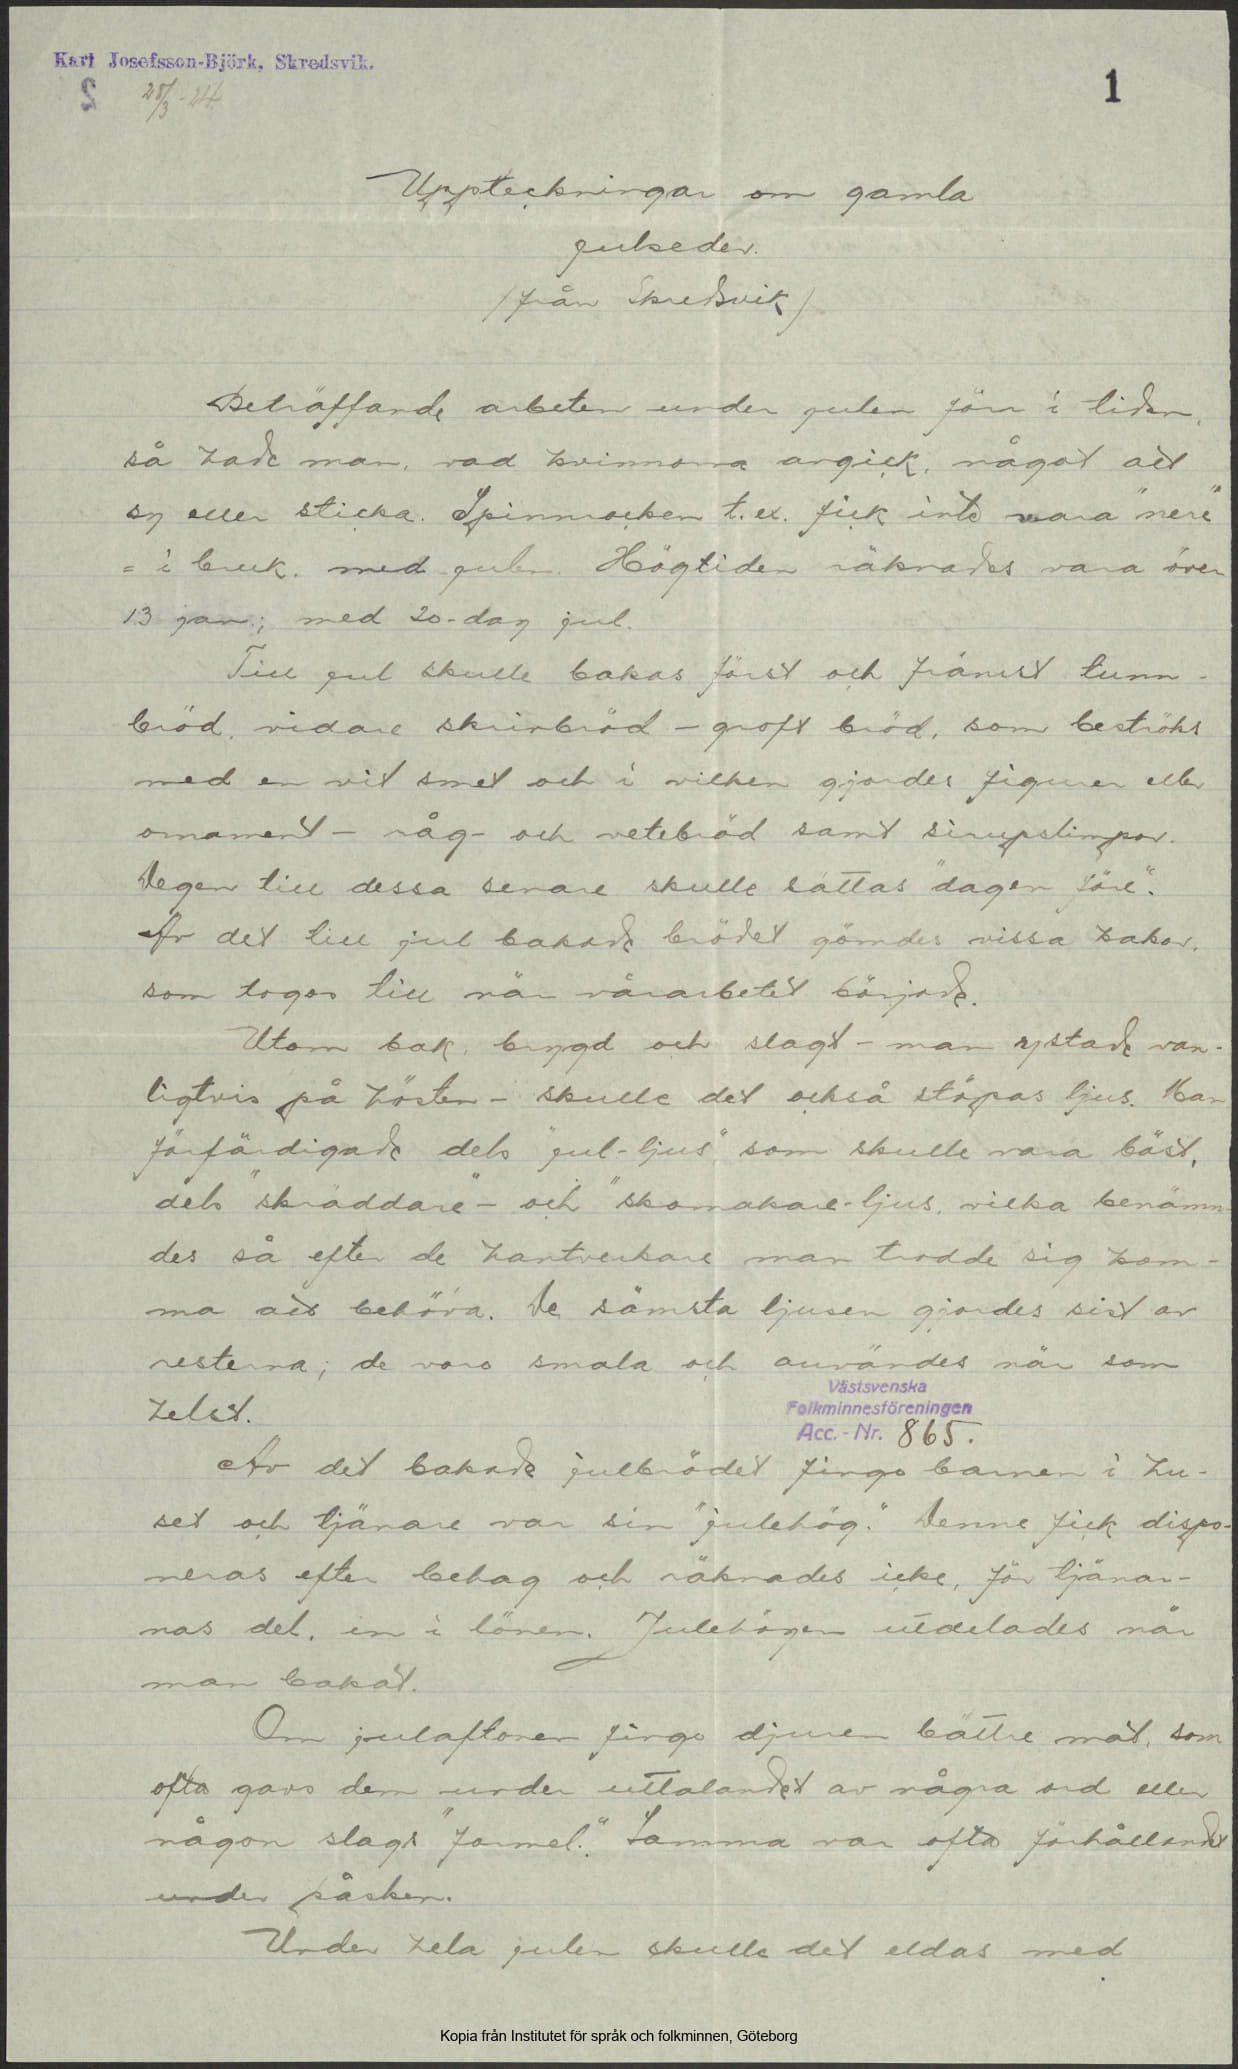 Karl Josefsson-Björk, Skredsvik.
28/3-24
1
Uppteckningar om gamla
julseder.
/från Skredsvik/
Beträffande arbeten under julen förr i tiden,
så hade man, vad kvinnorna angick, något att
sy eller sticka. Spinnrocken t.ex. fick inte vara "nere"
= i bruk, med julen. Högtiden räknades vara över
13 jan.; med 20-dag jul.
Till jul skulle bakas först och främst tunn-
bröd, vidare skrivbröd - groft bröd, som beströks
med en vit smet och i vilken gjordes figurer eller
ornament - råg- och vetebröd samt sirupslimpor.
Degen till dessa senare skulle sättas "dagen före".
Av det till jul bakade brödet gömdes vissa kakor,
som togos till när vårarbetet började.
Utom bak, brygd och slagt - man ystade van-
ligtvis på hösten - skulle det också stöpas ljus. Man
förfärdigade dels "jul-ljus" som skulle vara bäst,
dels "skräddare"- och "skomakare-ljus, vilka benämn
des så efter de hantverkare man trodde sig kom-
ma att behöva. De sämsta ljusen gjordes sist av
resterna; de voro smala och användes när som
helst.
Västsvenska
Folkminnesföreningen
Acc.-Nr. 865.
Av det bakade julbrödet fingo barnen i hu-
set och tjänare var sin "julehög." Denne fick dispo-
neras efter behag och räknades icke, för tjänar-
nas del, in i lönen. Julehögen utdelades när
man bakat.
Om julaftonen fingo djuren bättre mat, som
ofta gavs dem under uttalandet av några ord eller
någon slags "formel." Samma var ofta förhållandet
under påsken.
Under hela julen skulle det eldas med
Kopia från Institutet för språk och folkminnen, Göteborg